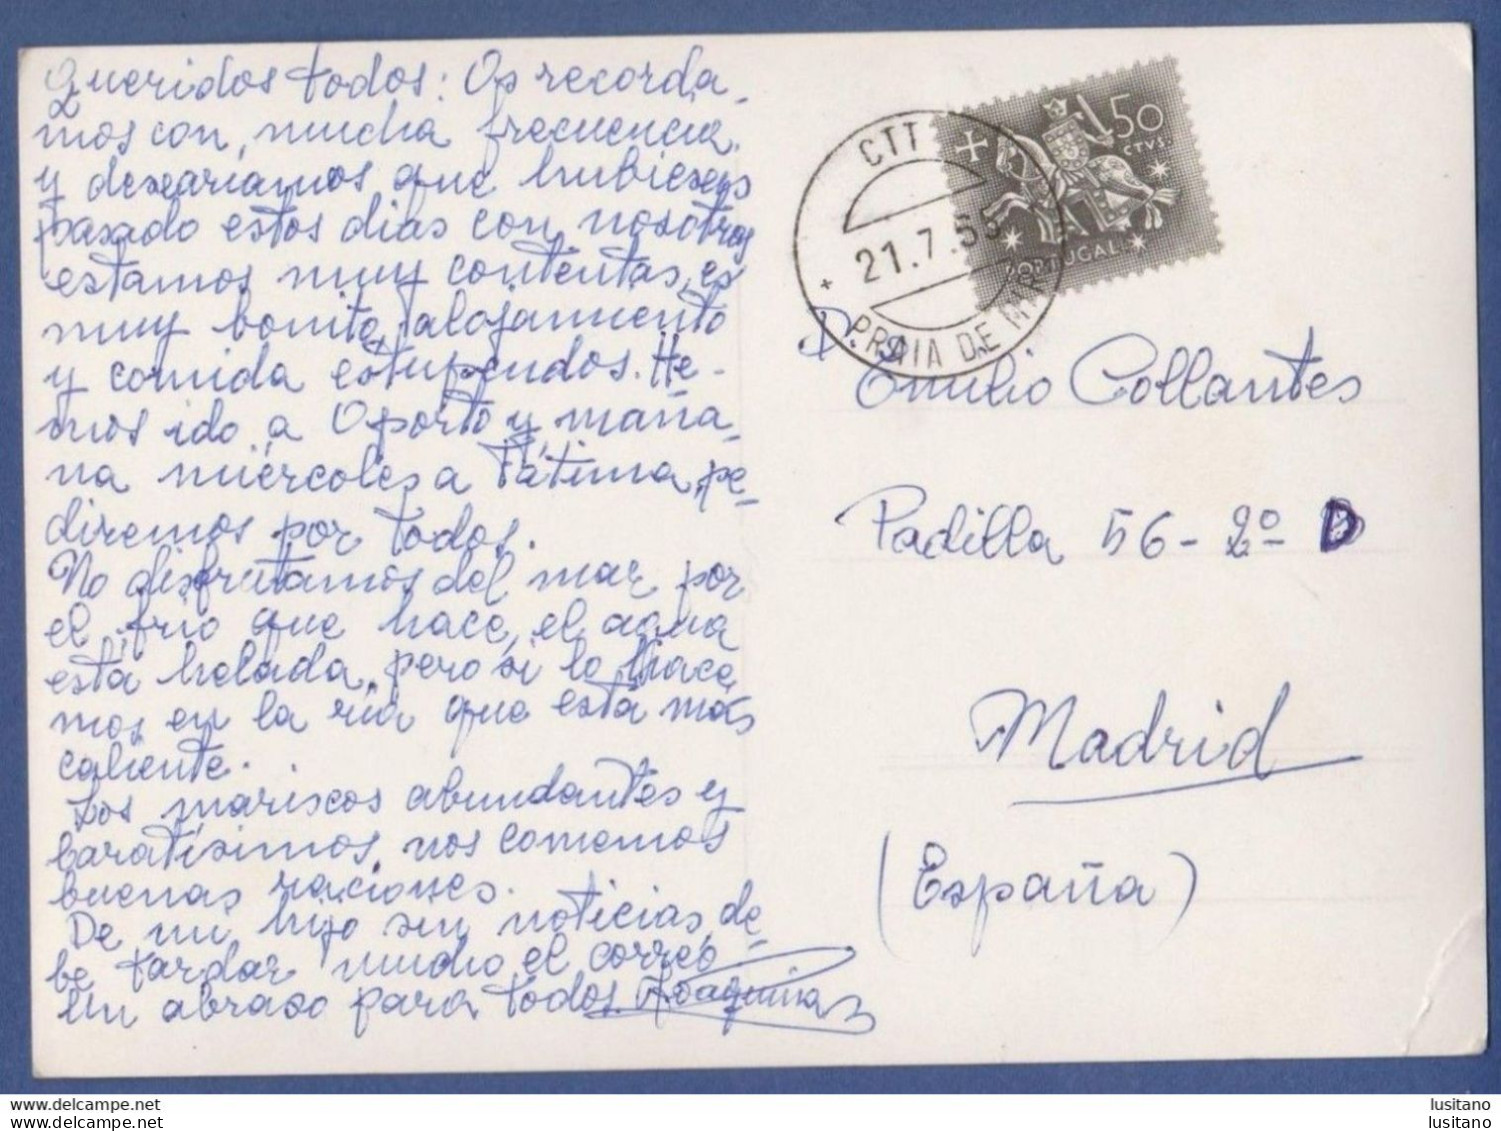 Queridos todos: Os recorda-
mos con mucha frecuencia
y desearíamos que hubieseis
pasado estos días con nosotros
estamos muy contentas, es
muy bonito, alojamiento
y comida estupendos. He-
mos ido a Oporto y maña-
na miércoles a Fátima, pe-
diremos por todos.
No disfrutamos del mar por
el frío que hace, el agua
está helada, pero si lo hace
mos en la ría que está más
caliente.
Los mariscos abundantes y
baratísimos, nos comemos
buenas raciones.
De mi hijo sin noticias, de-
be tardar mucho el correo
Un abrazo para todos. Joaquina
CTT
21.7.5
PRAIA DE MIRA
1$50
CTVS.
PORTUGAL
D.
Emilio Collantes
Padilla 56-2º D
Madrid
(España)
delcampe.net
delcampe.net
lusitano
lusitano